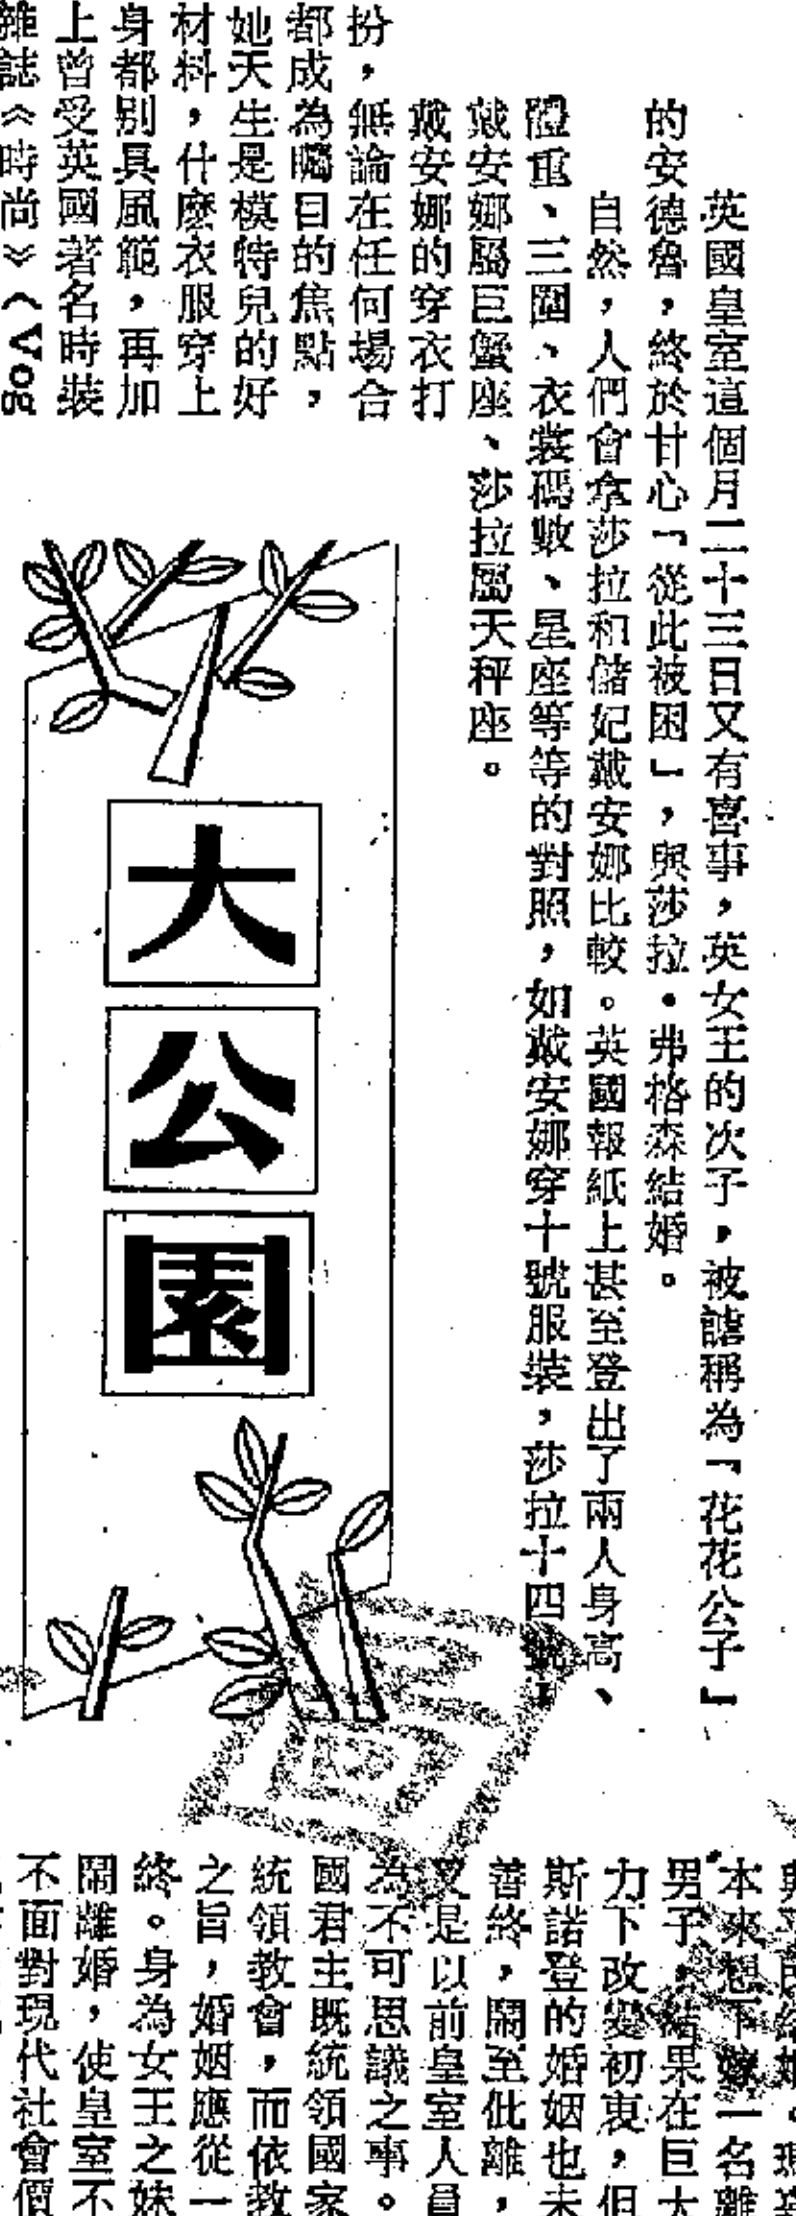 英國皇室這個月二十三日又有喜事，英女王的次子，被謔稱為「花花公子」
的安德魯，終於甘心「從此被困」，與莎拉・弗格森結婚。
自然，人們會拿莎拉和儲妃戴安娜比較。英國報紙上甚至登出了兩人身高、
體重、三圍、衣裳碼數、星座等等的對照，如戴安娜穿十號服裝，莎拉十四號，
戴安娜屬巨蟹座、莎拉屬天秤座。
戴安娜的穿衣打
扮，無論在任何場合
都成為矚目的焦點，
她天生是模特兒的好
材料，什麼衣服穿上
身都別具風範，再加
上曾受英國著名時裝
雜誌《時尚》（Vog
大公園
本來想下嫁一名離
男子，結果在巨大
力下改變初衷，但
斯諾登的婚姻也未
善終，鬧至仳離，
又是以前皇室人員
為不可思議之事。
國君主既統領國家
統領教會，而依教
之旨，婚姻應從一
終。身為女王之妹
鬧離婚，使皇室不
不面對現代社會價